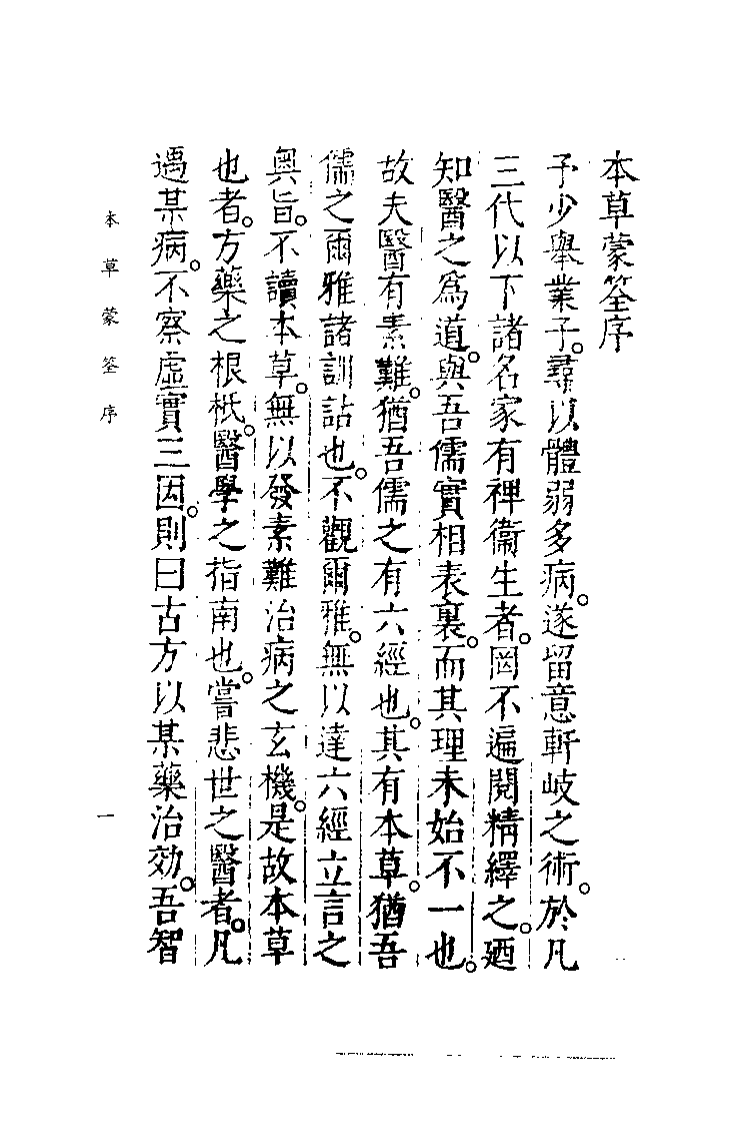 本草蒙筌序
予少舉業子。尋以體弱多病。遂留意軒岐之術。於凡
三代以下諸名家有裨衞生者。罔不遍閱精繹之。廼
知醫之爲道。與吾儒實相表裏。而其理未始不一也。
故夫醫有素難。猶吾儒之有六經也。其有本草。猶吾
儒之爾雅諸訓詁也。不觀爾雅。無以達六經立言之
奧旨。不讀本草。無以發素難治病之玄機。是故本草
也者。方藥之根柢。醫學之指南也。嘗悲世之醫者。凡
遇某病。不察虛實三因。則曰古方以某藥治効。吾智
本草蒙筌序
一